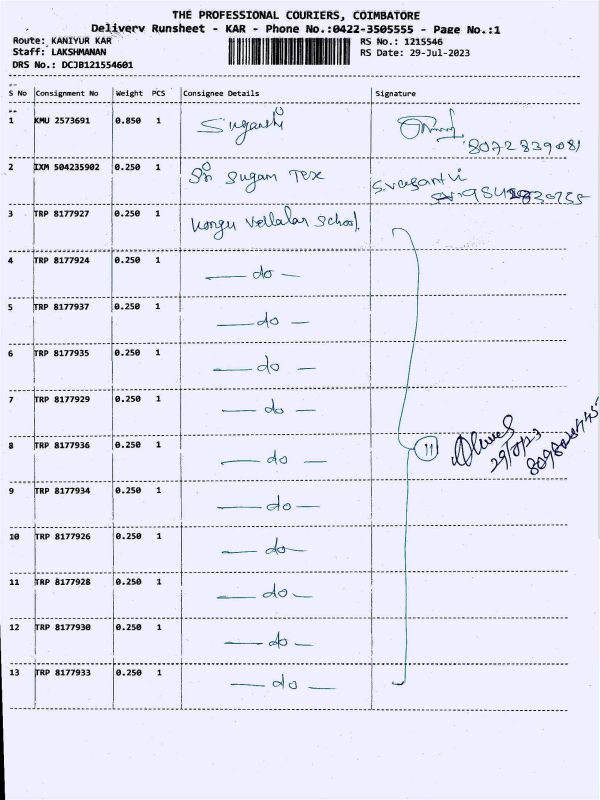 THE PROFESSIONAL COURIERS, COIMBATORE
Delivery Runsheet - KAR - Phone No.:0422-3505555 - Page No.:1
Route: KANIYUR KAR RS No.: 1215546
Staff: LAKSHMANAN RS Date: 29-Jul-2023
DRS No.: DCJB121554601
S No Consignment No Weight PCS Consignee Details Signature
1 KMU 2573691 0.850 1 Suganthi
8072839081
2 IXM 504235902 0.250 1 Sri Sugam Tex S.vasantvi
3 TRP 8177927 0.250 1 Kongu Vellalar School
4 TRP 8177924 0.250 1 — do —
5 TRP 8177937 0.250 1 — do —
6 TRP 8177935 0.250 1 — do —
7 TRP 8177929 0.250 1 — do —
8 TRP 8177936 0.250 1 — do — 11
9 TRP 8177934 0.250 1 — do —
10 TRP 8177926 0.250 1 — do —
11 TRP 8177928 0.250 1 — do —
12 TRP 8177930 0.250 1 — do —
13 TRP 8177933 0.250 1 — do —